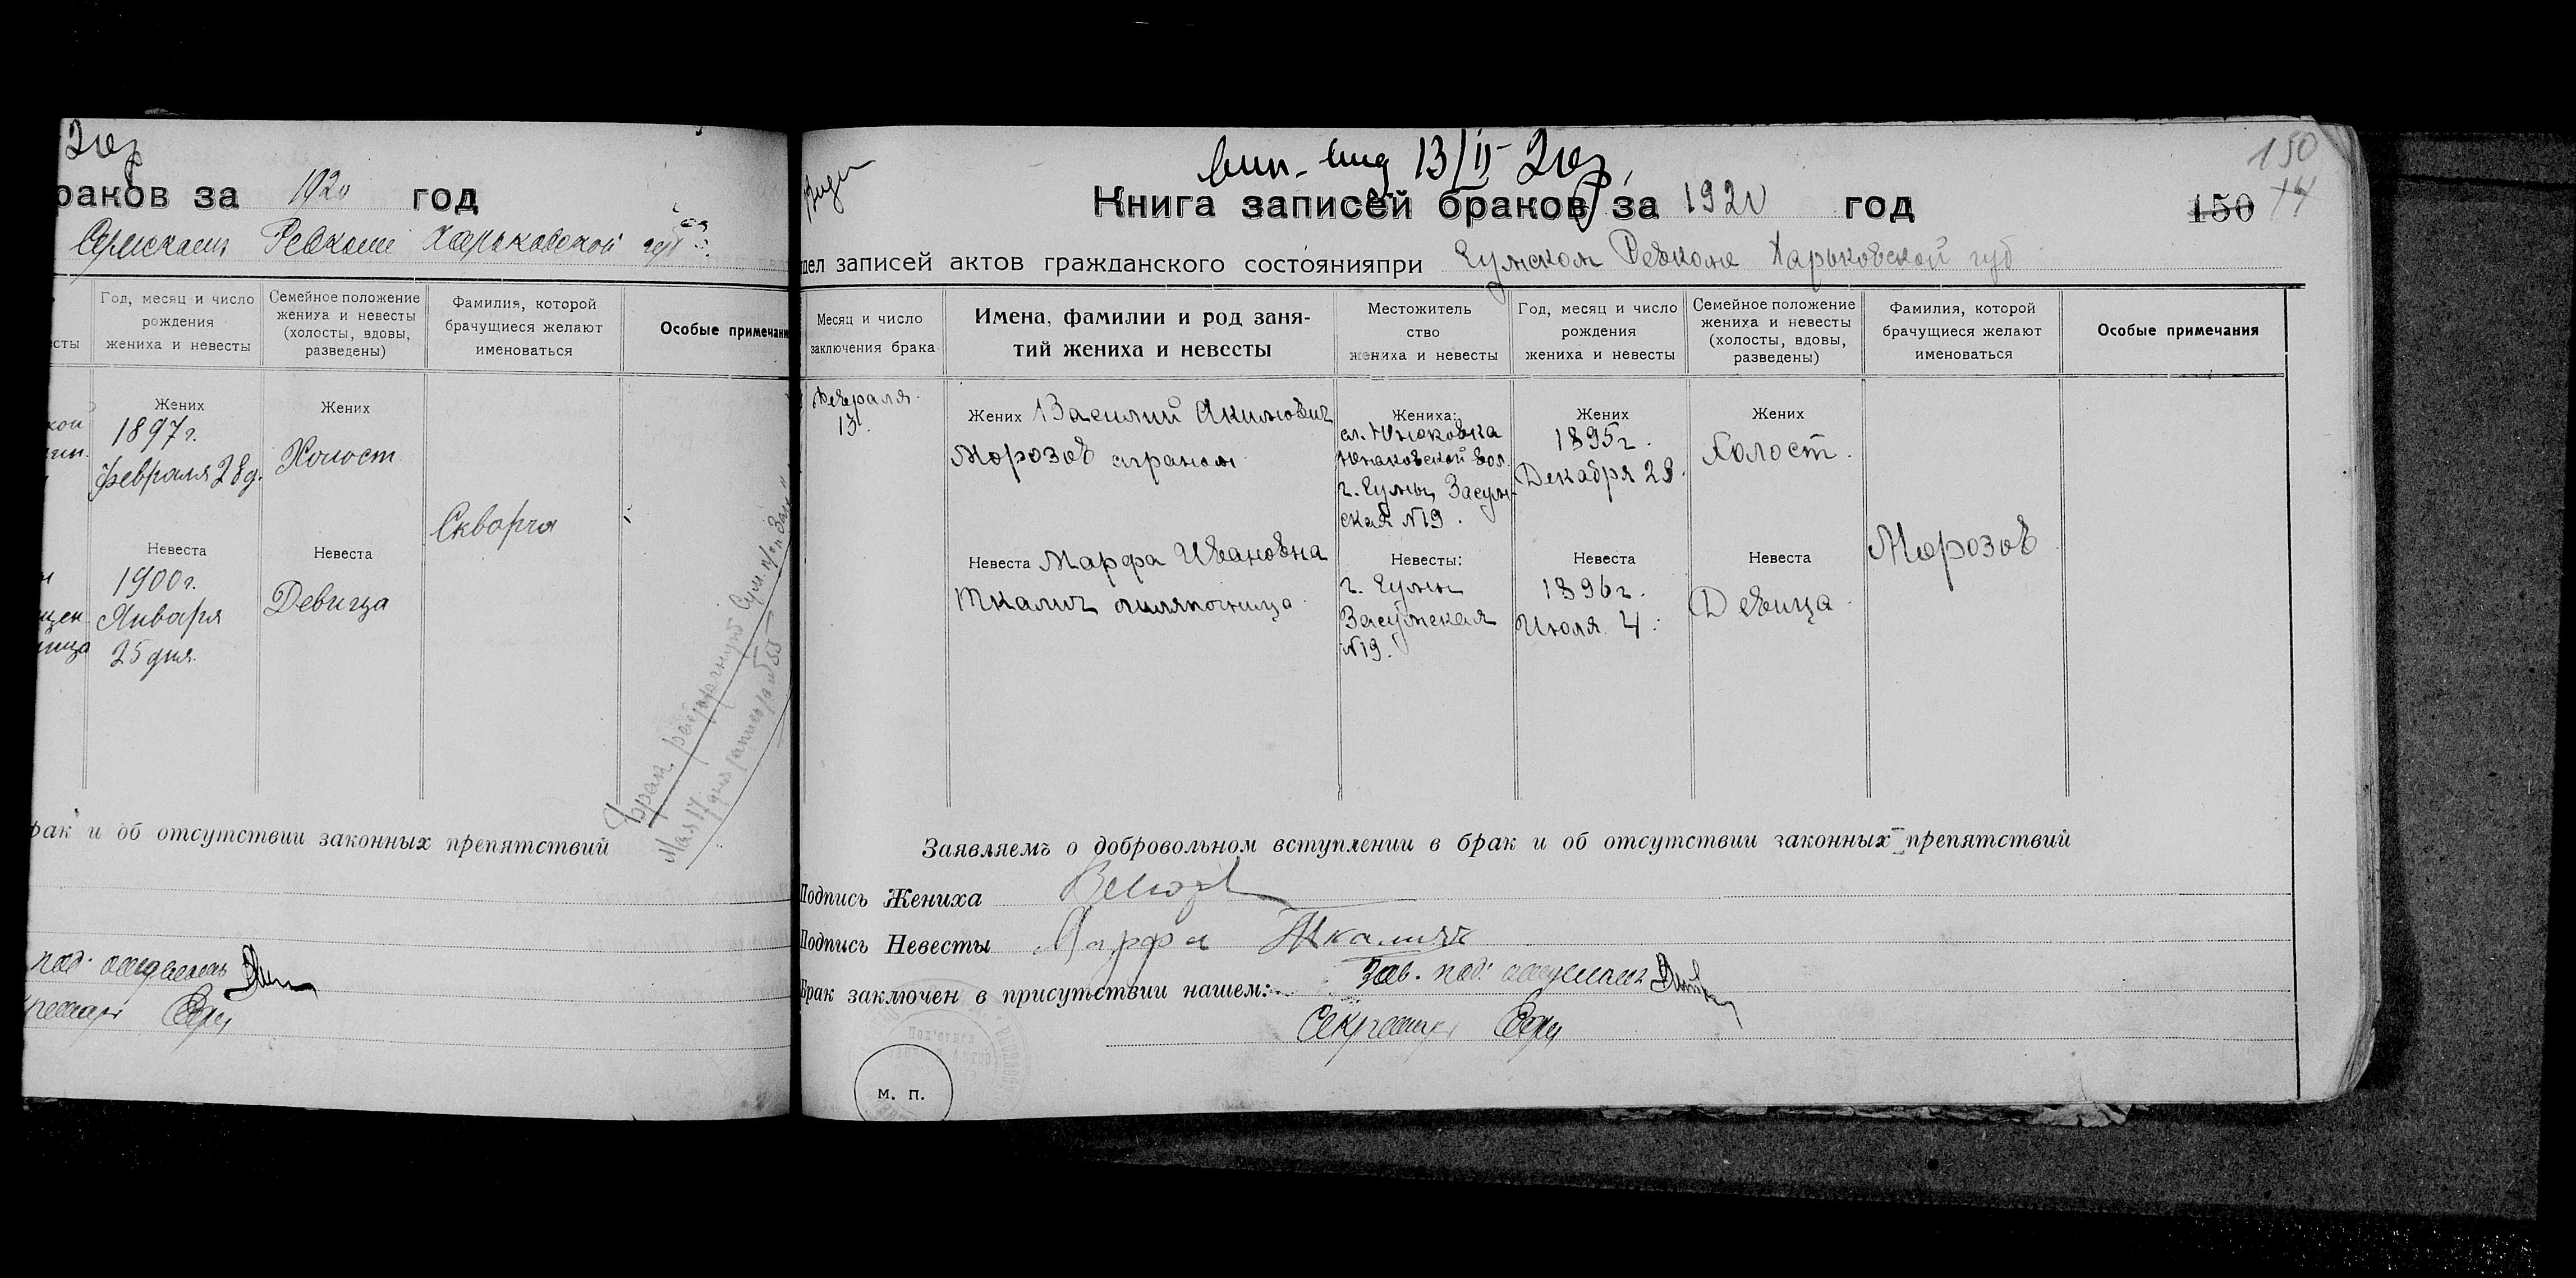 20г
раков за 1920 год
Сумском Ревкоме Харьковской губ
Год, месяц и число
рождения
жениха и невесты
Семейное положение
жениха и невесты
(холосты, вдовы,
разведены)
Фамилия, которой
брачущиеся желают
именоваться
Особые примечани
есты
Жених
1897г.
февраля 28д.
Жених
Холост
Скворча
Невеста
1900г.
Января
25 дня.
Невеста
Девица
Брак расторгнут Сум.
Мая 17 дня запись
рак и об отсутствии законных препятствий
под. отделом
вып. вид 13/II 20г.
Книга записей браков за 1920 год
150
150
14
дел записей актов гражданского состоянияпри Сумском Ревкоме Харьковской губ
Месяц и число
заключения брака
Имена, фамилии и род заня-
тий жениха и невесты
Местожитель
ство
жениха и невесты
Год, месяц и число
рождения
жениха и невесты
Семейное положение
жениха и невесты
(холосты, вдовы,
разведены)
Фамилия, которой
брачущиеся желают
именоваться
Особые примечания
Февраля
13.
Жених Василий Акимович
Морозов аграном
Жениха:
сл. Юнаковка
Юнаковской вол.
г. Сумы, Засум-
ская №19.
Жених
1895г.
Декабря 28.
Жених
Холост.
Морозов
Невеста Марфа Ивановна
Ткалич шляпочница
Невесты:
г. Сумы
Засумская
№19.
Невеста
1896г.
Июля 4.
Невеста
Девица.
Заявляемъ о добровольном вступлении в брак и об отсутствии законных препятствий
Подпись Жениха
Подпись Невесты Марфа Ткалич
Брак заключен в присутствии нашем: Зав. под. отделом
Секретарь
м. п.